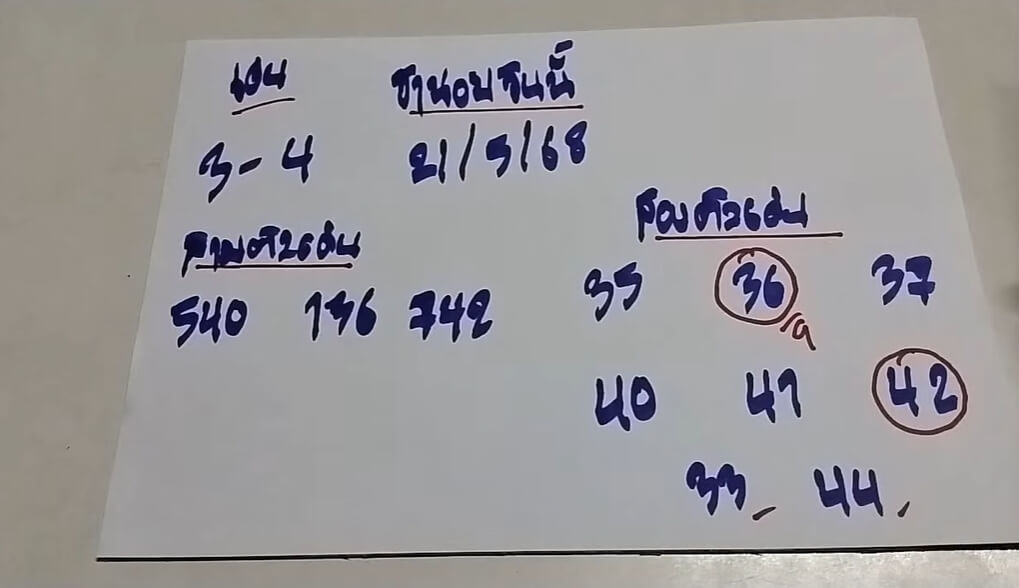 เด่น
ฮานอยวันนี้
3-4
21/5/68
สามตัวเด่น
540 136 742
สองตัวเด่น
35 36 37
40 41 42
33 - 44